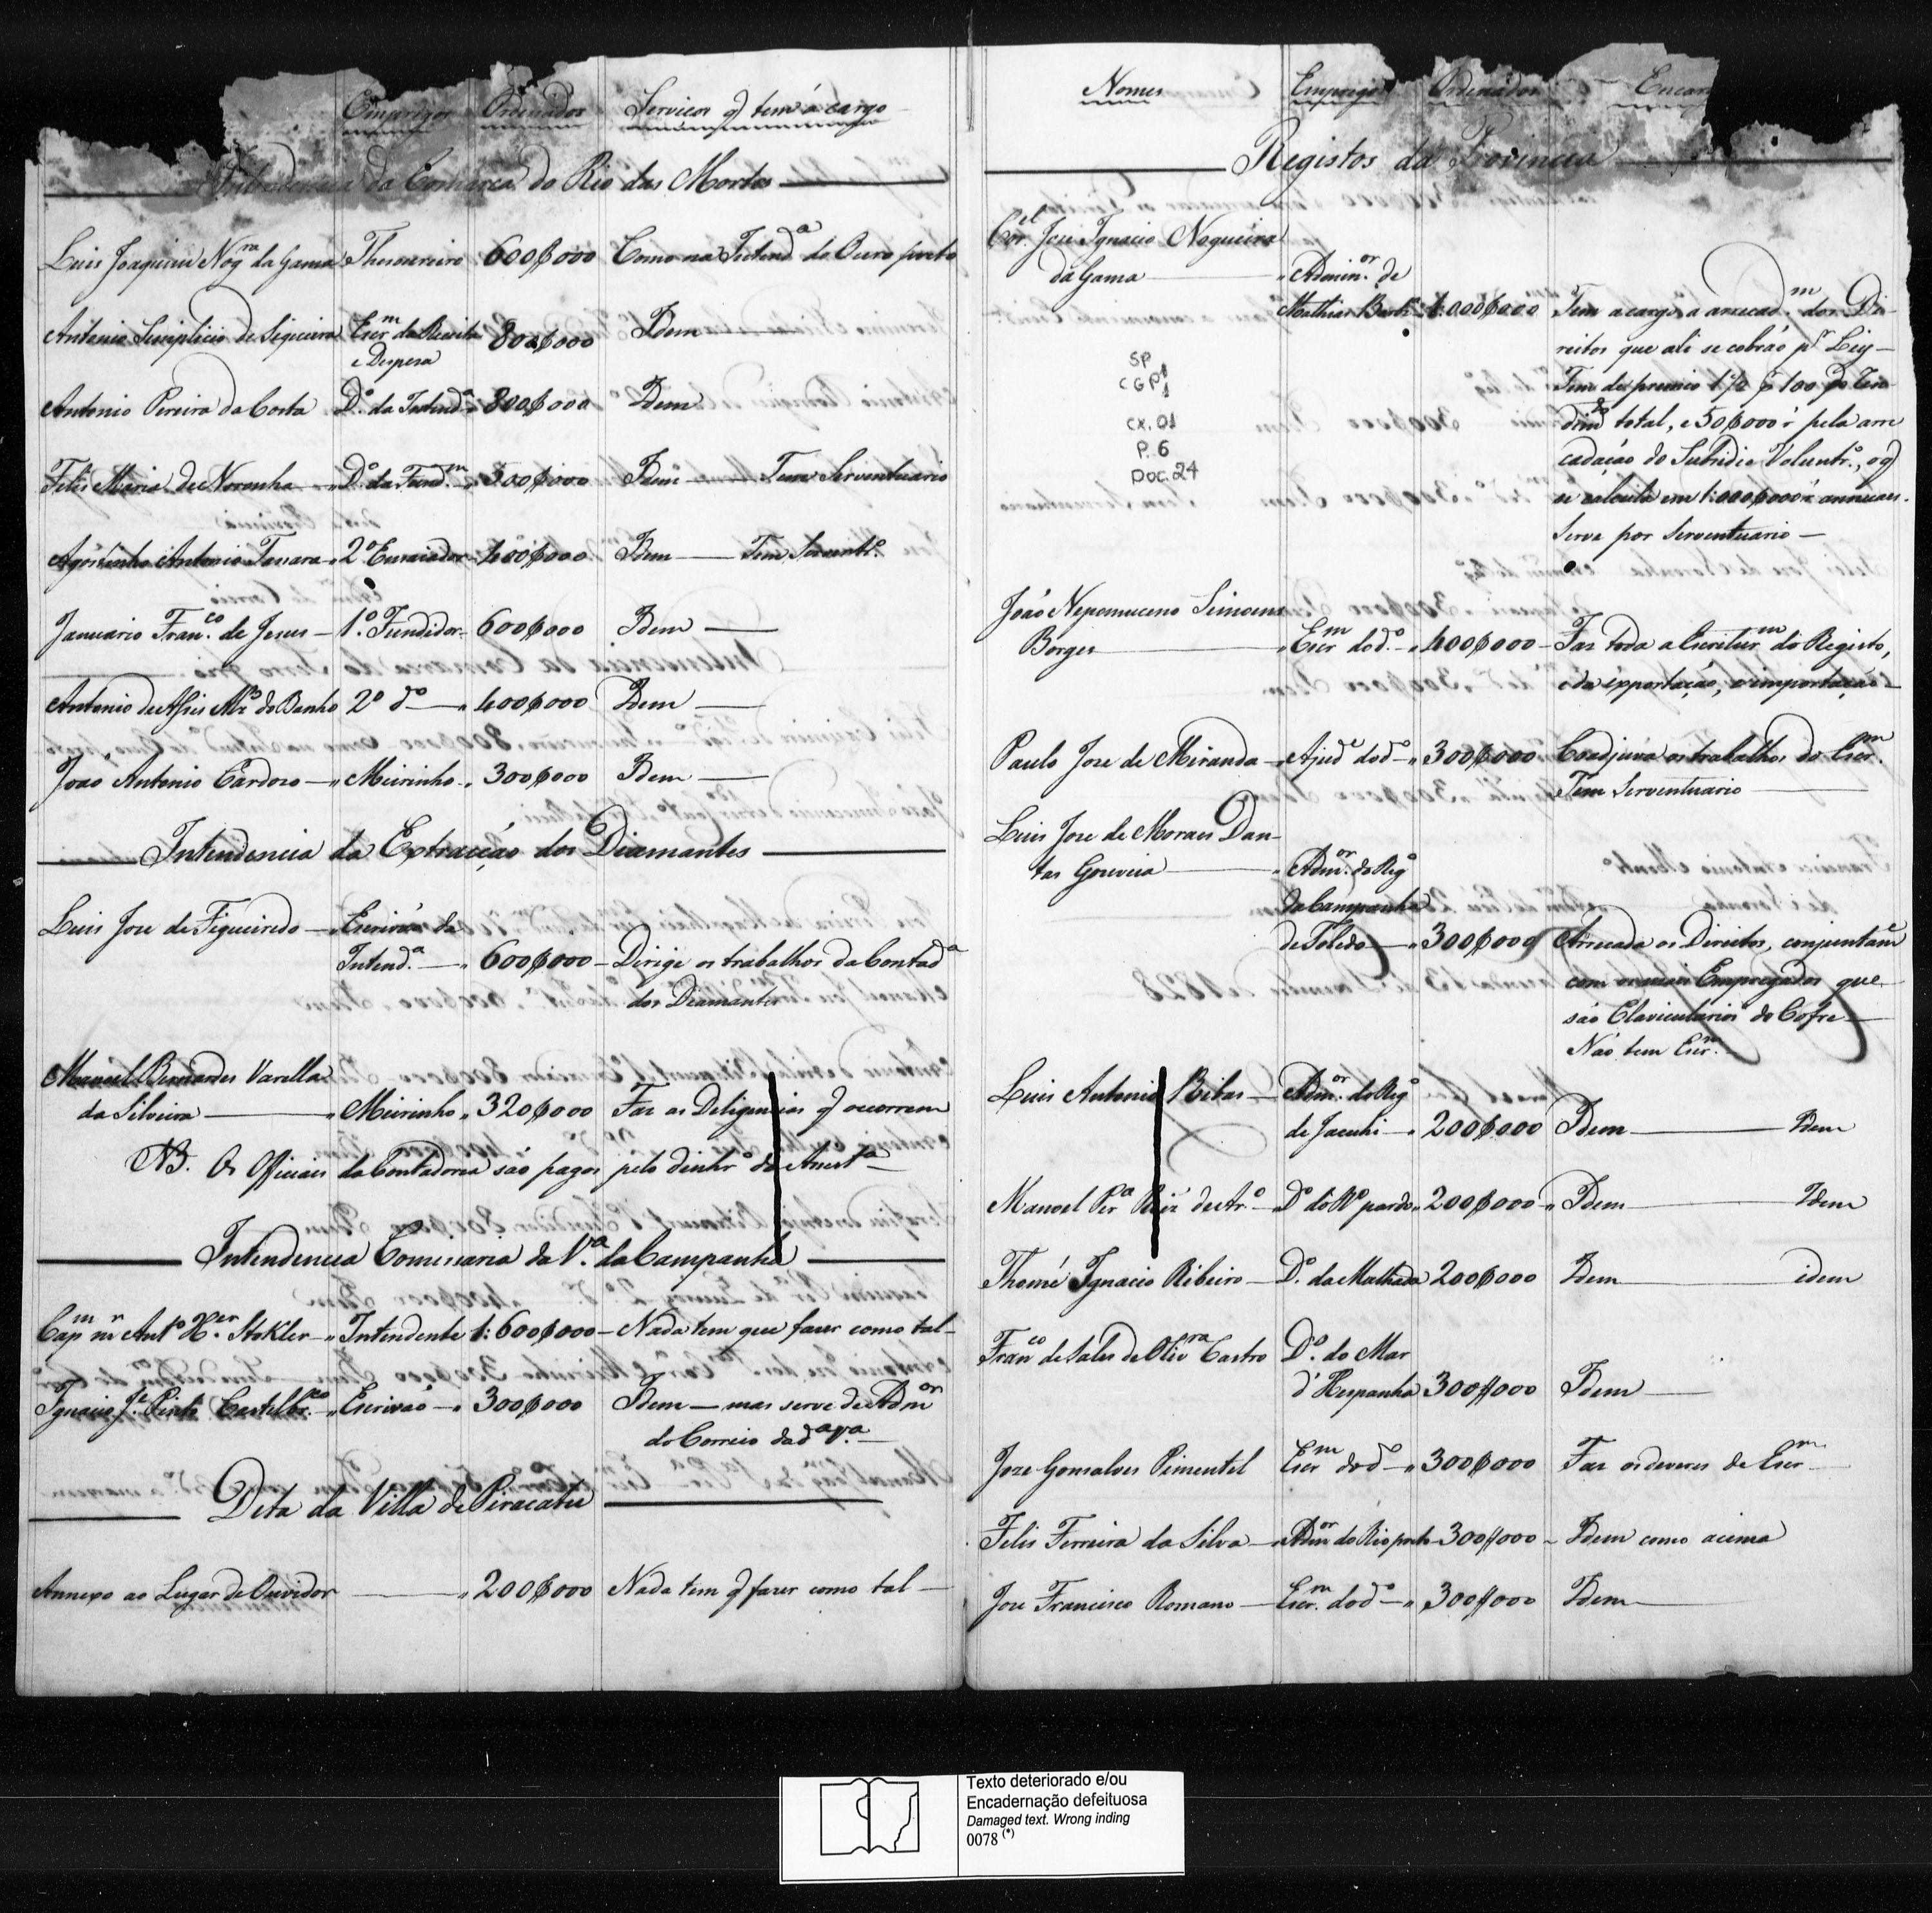 Empregos Ordenados Serviços q̃ tem á cargo
Intendencia da Comarca do Rio das Mortes
Luis Joaquim Nogra da Gama Thesoureiro 600$000 Como na Intenda do Ouro preto
Antonio Simplicio de Siqueira Escrm da Receita 800$000 Idem
e Despesa
Antonio Pereira da Costa Do da Intenda 800$000 Idem
Felis Maria de Noronha Do da Fundm 300$000 Idem Tem Serventuario
Agostinho Antonio Tassara 2o Ensaiador 400$000 Idem Tem Serventro
Januario Franco de Jesus 1o Fundidor 600$000 Idem
Antonio de Assis Mz do Banho 2o do 400$000 Idem
João Antonio Cardozo Meirinho 300$000 Idem
Intendencia da Extracção dos Diamantes
Luis Jose de Figueiredo Escrivão da
Intenda 600$000 Dirige os trabalhos da Contada
dos Diamantes
Manoel Bernardes Varella
da Silveira Meirinho 320$000 Faz as Deligencias q̃ occorrem
NB. Os Officiaes da Contadoria são pagos pelo dinhro da Assista
Intendencia Comissaria da Va da Campanha
Capm mr Anto Her Stokler Intendente 1:600$000 Nada tem que fazer como tal
Ignacio Je Pinto Castelbrco Escrivão 300$000 Idem mas serve de Admor
do Correio da da Va
Deta da Villa de Piracatu
Annexo ao Lugar de Ouvidor 200$000 Nada tem q̃ fazer como tal
Nomes Empregos Ordenados Encar
Registos da Provincia
Corel Jose Ignacio Nogueira
da Gama Adminor de
Mathias Barbo 1:000$000 Tem a cargo a arrecadm dos Di-
reitos que ali se cobrão pr Ley
Tem de premio 1 1/2 p 100 do Ren
dimto total, e 50$000 r pela arre
cadação do Subsidio Voluntro, o q̃
se calcula em 1:000$000 r annuaes.
Serve por Serventuario
SP
CGP1
1
CX. 01
P. 6
Doc. 24
João Nepomuceno Simoens
Borges Escrm do do 400$000 Faz toda a Escriturm do Registo,
e da exportação, e importação
Paulo Jose de Miranda Ajude do do 300$000 Coadjuva os trabalhos do Escrm
Tem Serventuario
Luis Jose de Moraes Dan-
tas Gouveia Admor do Rego
da Campanha
de Toledo 300$000 Arrecada os Direitos, conjuntame
com os mais Empregados que
são Clavicularios do Cofre
Não tem Escrm
Luis Antonio Ribas Admor do Rego
de Jacuhi 200$000 Idem Idem
Manoel Pera Roiz de Aro Do do Ro pardo 200$000 Idem Idem
Thomé Ignacio Ribeiro Do da Malhada 200$000 Idem idem
Franco de Sales de Olivra Castro Do do Mar
d'Hespanha 300$000 Idem
Joze Gonsalves Pimentel Escrm do do 300$000 Faz os deveres de Escrm
Felis Ferreira da Silva Admor do Rio preto 300$000 Idem como acima
Jose Francisco Romano Escrm do do 300$000 Idem
Texto deteriorado e/ou
Encadernação defeituosa
Damaged text. Wrong inding
0078 (*)